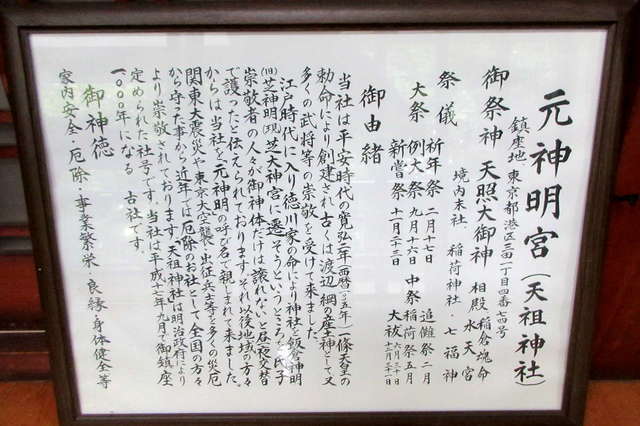 元神明宮（天祖神社）
鎮座地、東京都港区三田一丁目四番七四号
御祭神 天照大御神 相殿 稲倉魂命
水天宮
境内末社、稲荷神社・七福神
祭儀 祈年祭 二月十七日 追儺祭 二月
大祭 例大祭 九月十六日 中祭 稲荷祭 五月
新嘗祭 十一月二十三日 大祓 六月三十日
十二月三十一日
御由緒
当社は平安時代の寛弘二年（西暦一〇〇五年）一條天皇の
勅命により創建され古くは渡辺綱の産土神として又
多くの武将等の崇敬を受けて来ました。
江戸時代に入り徳川家の命により神社を飯倉神明
（旧）芝神明（現）芝大神宮に遷そうというところを氏子
崇敬者の人々が御神体だけは譲れないと昼夜交替
で護ったと伝えられております。それ以後地域の方々
からは当社を元神明の呼び名で親しまれて来ました。
関東大震災や東京大空襲・出征兵士等を多くの災厄
から守った事から近年では厄除のお社として全国の方々
より崇敬されております。「天祖神社」は明治政府により
定められた社号です。当社は平成十七年九月で御鎮座
一、〇〇〇年になる 古社です。
御神徳
家内安全・厄除・事業繁栄・良縁・身体健全等